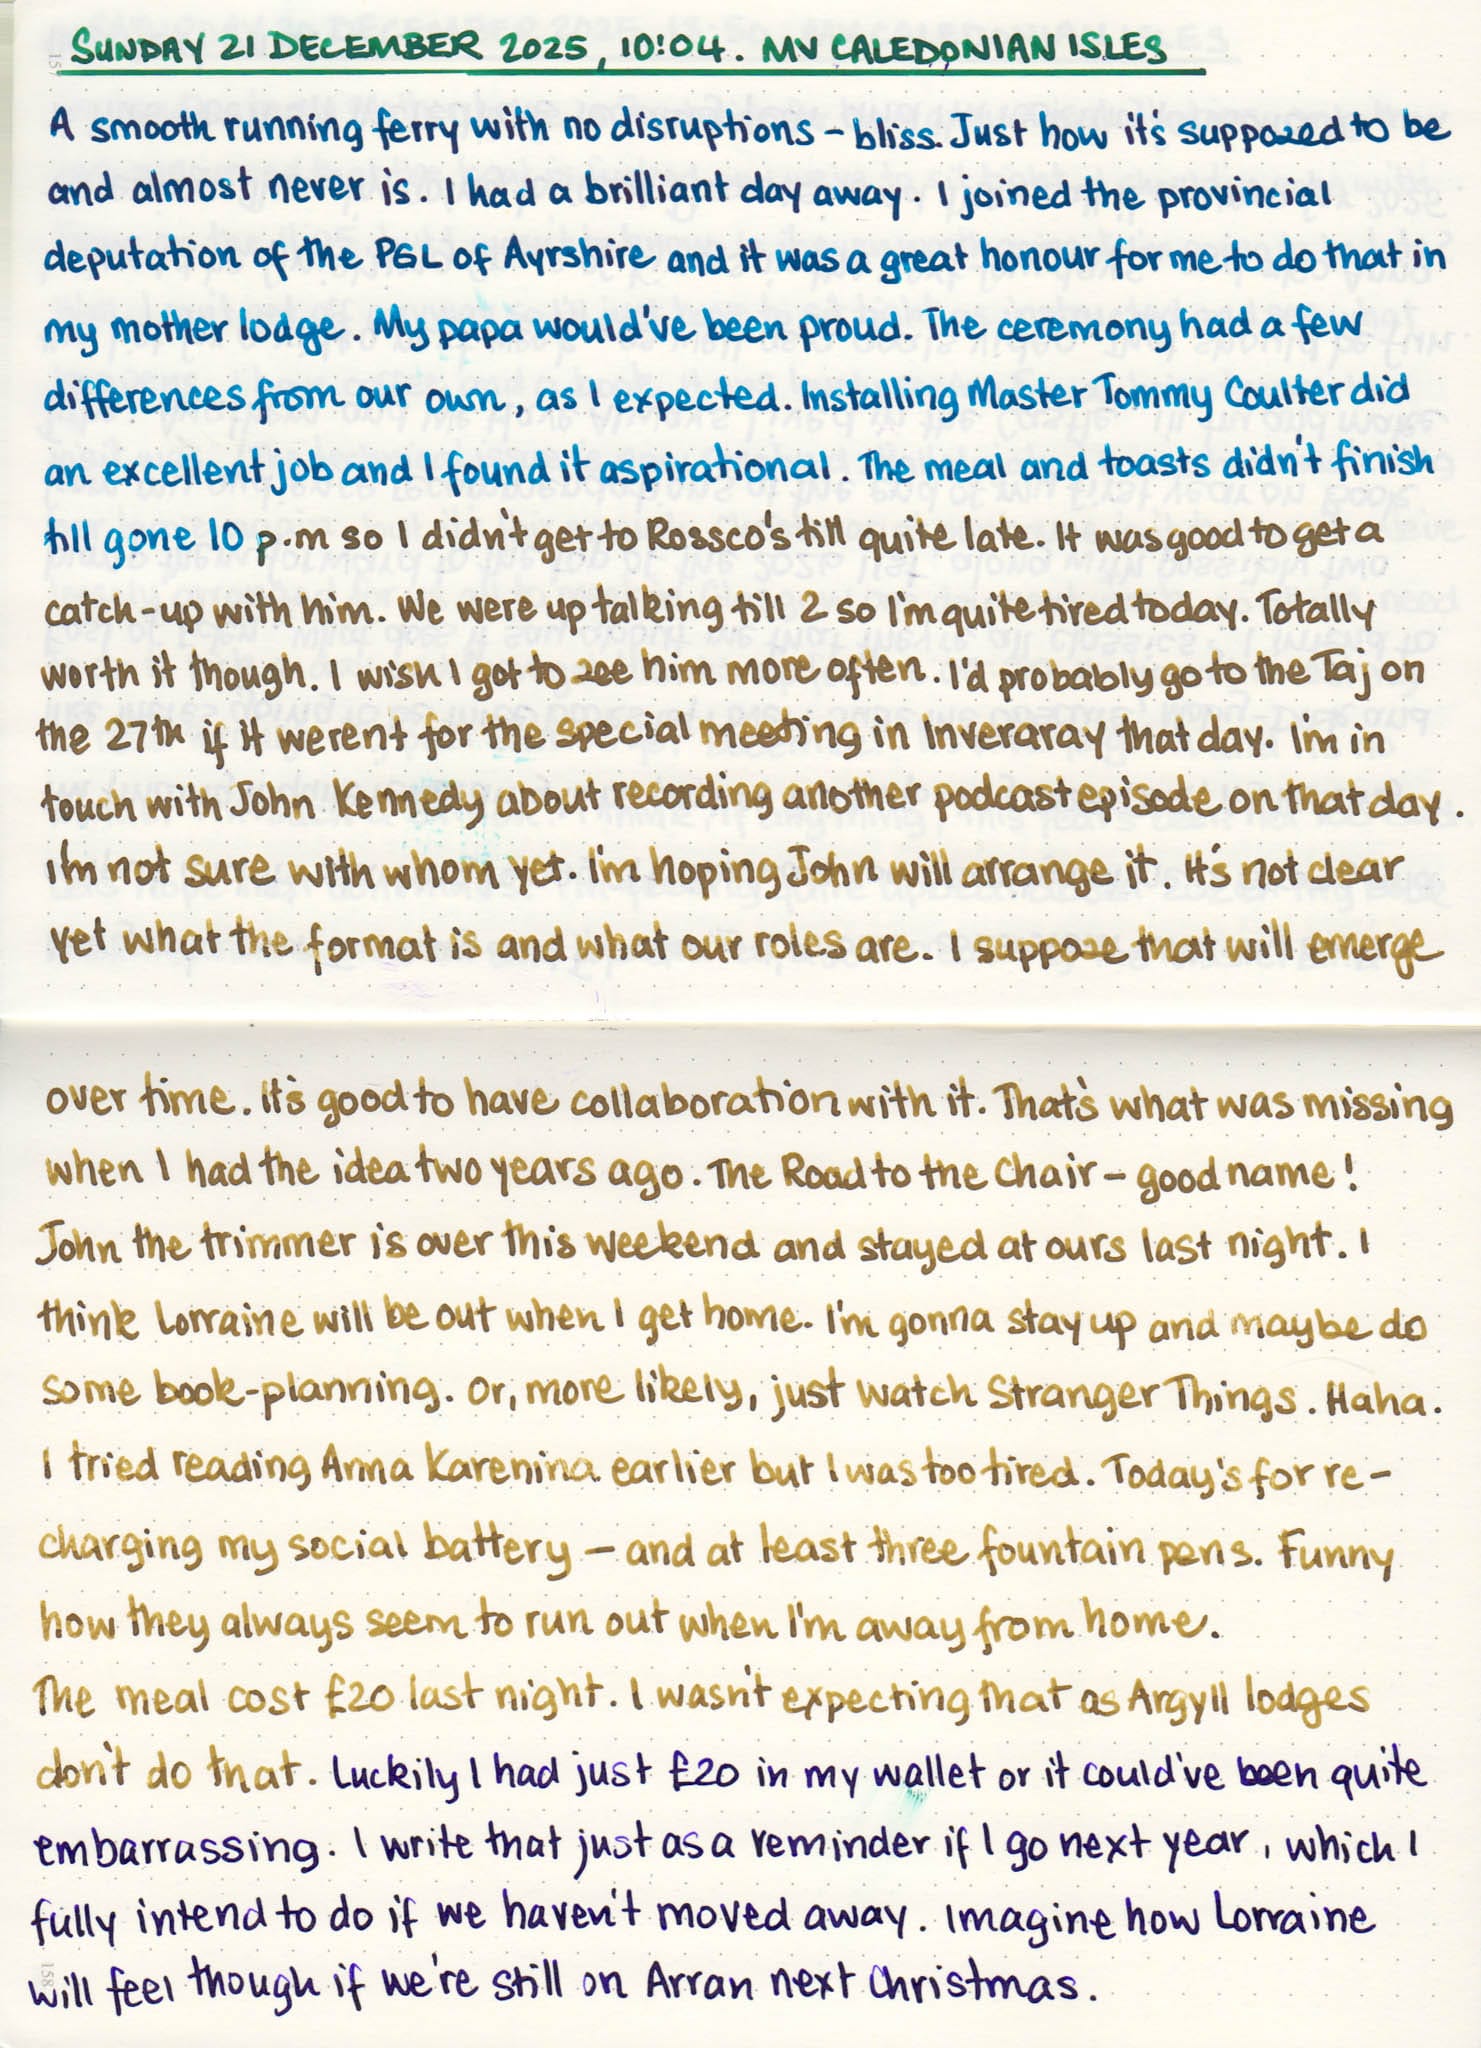 SUNDAY 21 DECEMBER 2025, 10:04. MV CALEDONIAN ISLES
A smooth running ferry with no disruptions – bliss. Just how it's supposed to be
and almost never is. I had a brilliant day away. I joined the provincial
deputation of the PGL of Ayrshire and it was a great honour for me to do that in
my mother lodge. My papa would've been proud. The ceremony had a few
differences from our own, as I expected. Installing Master Tommy Coulter did
an excellent job and I found it aspirational. The meal and toasts didn't finish
till gone 10 p.m so I didn't get to Rossco's till quite late. It was good to get a
catch-up with him. We were up talking till 2 so I'm quite tired today. Totally
worth it though. I wish I got to see him more often. I'd probably go to the Taj on
the 27th if it weren't for the special meeting in Inveraray that day. I'm in
touch with John Kennedy about recording another podcast episode on that day.
I'm not sure with whom yet. I'm hoping John will arrange it. It's not clear
yet what the format is and what our roles are. I suppose that will emerge
over time. It's good to have collaboration with it. That's what was missing
when I had the idea two years ago. The Road to the Chair – good name!
John the trimmer is over this weekend and stayed at ours last night. I
think Lorraine will be out when I get home. I'm gonna stay up and maybe do
some book-planning. Or, more likely, just watch Stranger Things. Haha.
I tried reading Anna Karenina earlier but I was too tired. Today's for re-
charging my social battery – and at least three fountain pens. Funny
how they always seem to run out when I'm away from home.
The meal cost £20 last night. I wasn't expecting that as Argyll lodges
don't do that. Luckily I had just £20 in my wallet or it could've been quite
embarrassing. I write that just as a reminder if I go next year, which I
fully intend to do if we haven't moved away. Imagine how Lorraine
will feel though if we're still on Arran next Christmas.
158